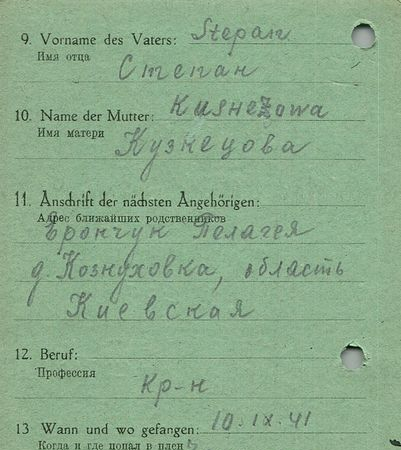 9. Vorname des Vaters: Stepan
Имя отца
Степан
10. Name der Mutter: Kusnezowa
Имя матери
Кузнецова
11. Anschrift der nächsten Angehörigen:
Адрес ближайших родственников
Пелагея
д. Кознуховка, область
Киевская
12. Beruf:
Профессия
кр-н
13 Wann und wo gefangen: 10.IX.41
Когда и где попал в плен